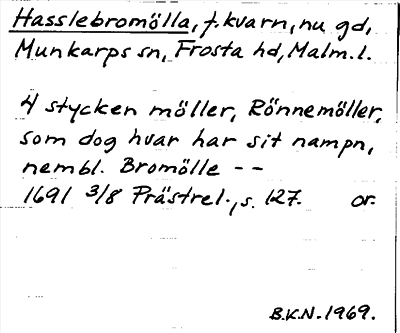 Hasslebromölla, f. kvarn, nu gd,
Munkarps sn, Frosta hd, Malm. l.
4 stycken möller, Rönnemöller,
som dog hvar har sit nampn,
nembl. Bromölle - -
1691 3/8 Prästrel., s. 127. or.
B.K.N. 1969.